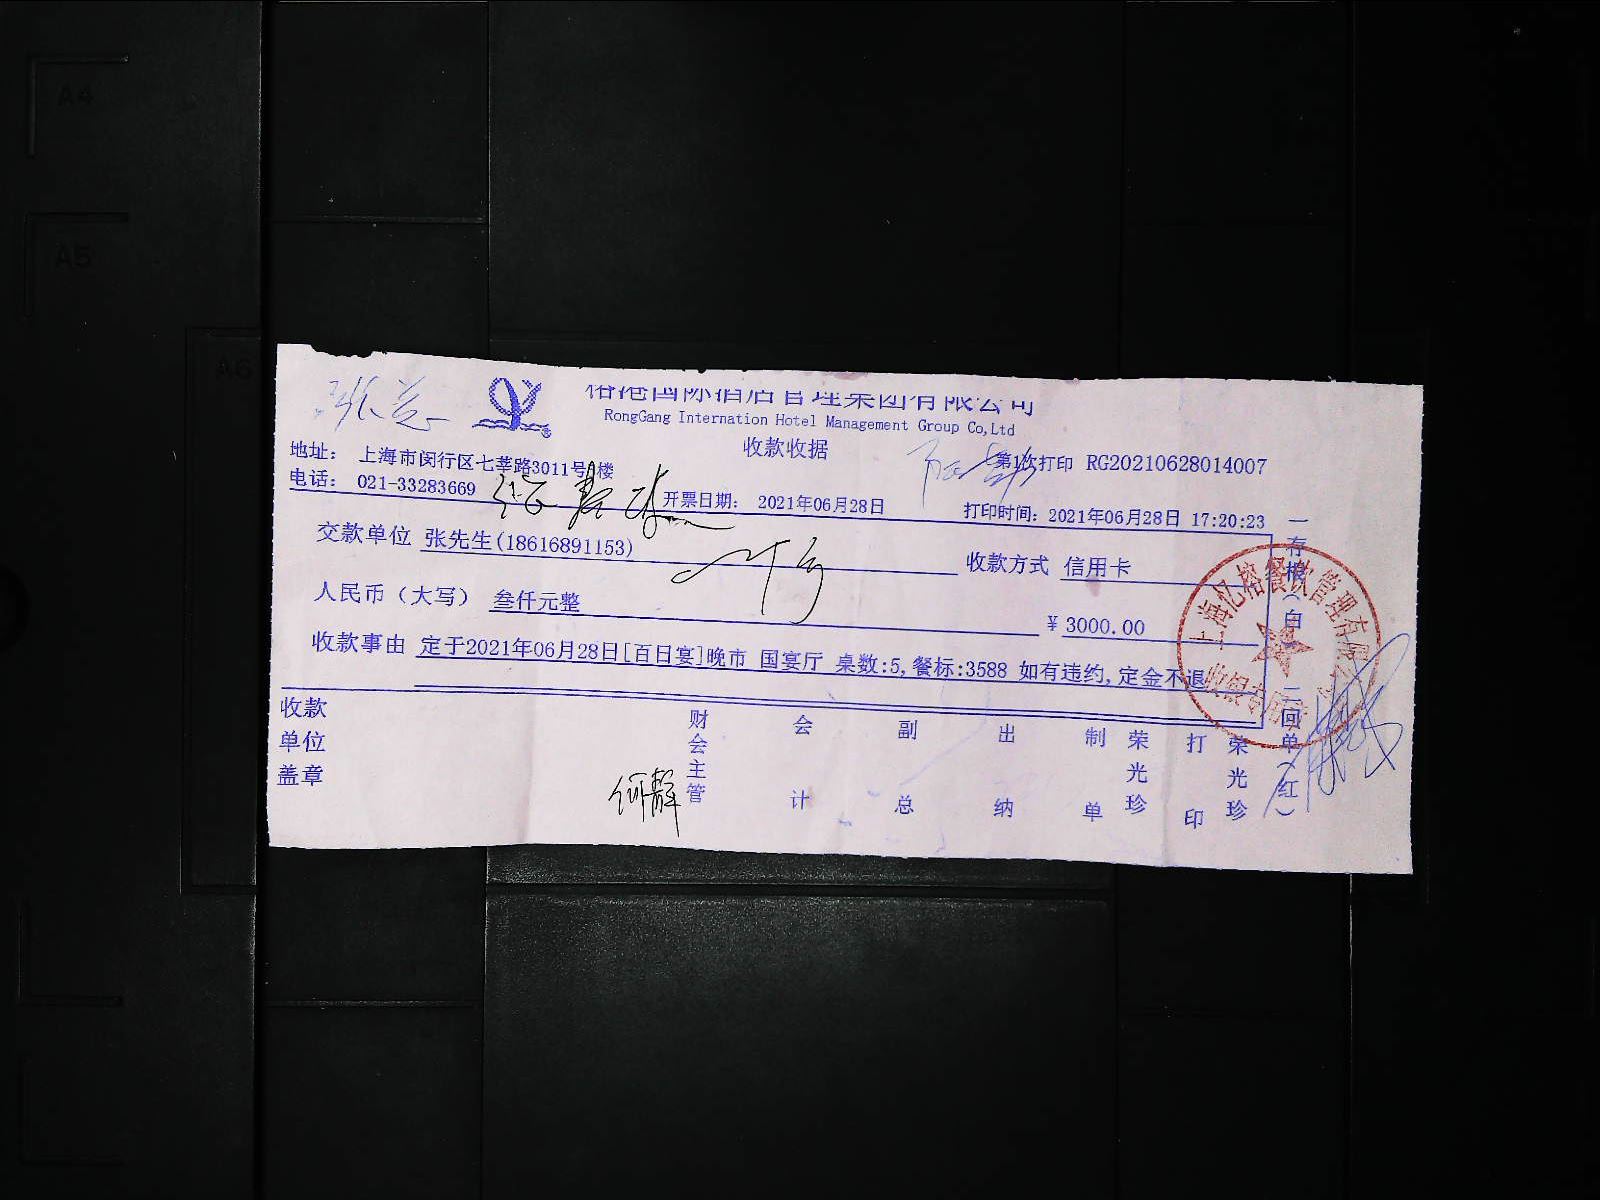 A4
A5
A6
榕港国际酒店管理集团有限公司
RongGang Internation Hotel Management Group Co,Ltd
收款收据
第1次打印 RG20210628014007
地址: 上海市闵行区七莘路3011号 楼
电话: 021-33283669
开票日期: 2021年06月28日
打印时间: 2021年06月28日 17:20:23
交款单位 张先生(18616891153)
收款方式 信用卡
人民币（大写） 叁仟元整
¥ 3000.00
收款事由 定于2021年06月28日[百日宴]晚市 国宴厅 桌数:5,餐标:3588 如有违约,定金不退
一存根(白) 二回单(红)
上海忆榕餐饮管理有限公司
收银专用章
收款单位盖章
财会主管
何静
会计
副总
出纳
制单 荣光珍
打印 荣光珍